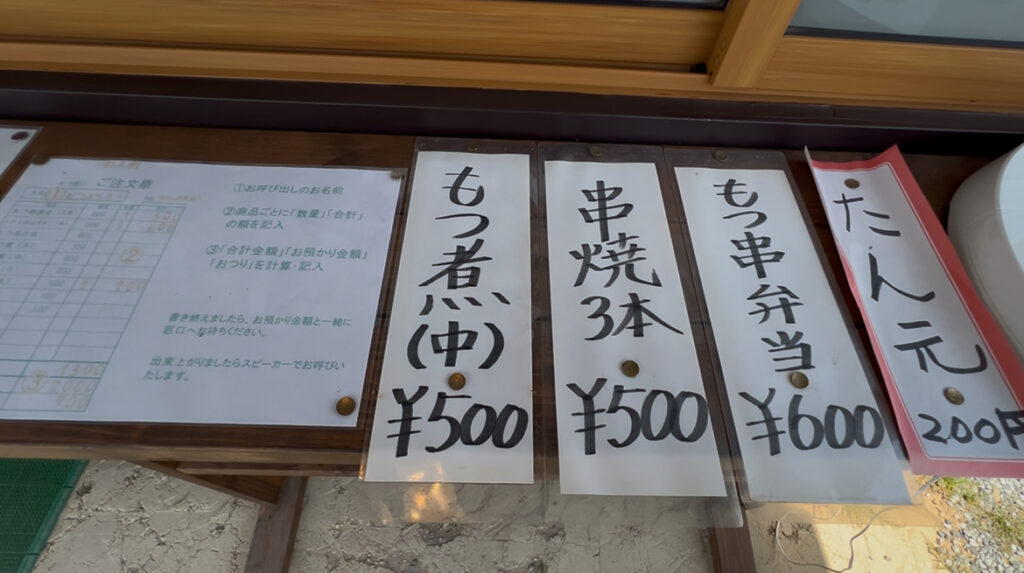 ご注文票
①お呼び出しのお名前
②商品ごとに「数量」「合計」
の額を記入
③「合計金額」「お預かり金額」
「おつり」を計算・記入
書き終えましたら、お預かり金額と一緒に
窓口へお持ちください。
出来上がりましたらスピーカーでお呼びい
たします。
もつ煮
(中)
¥500
串焼
3本
¥500
もつ串弁当
¥600
たん元
200円